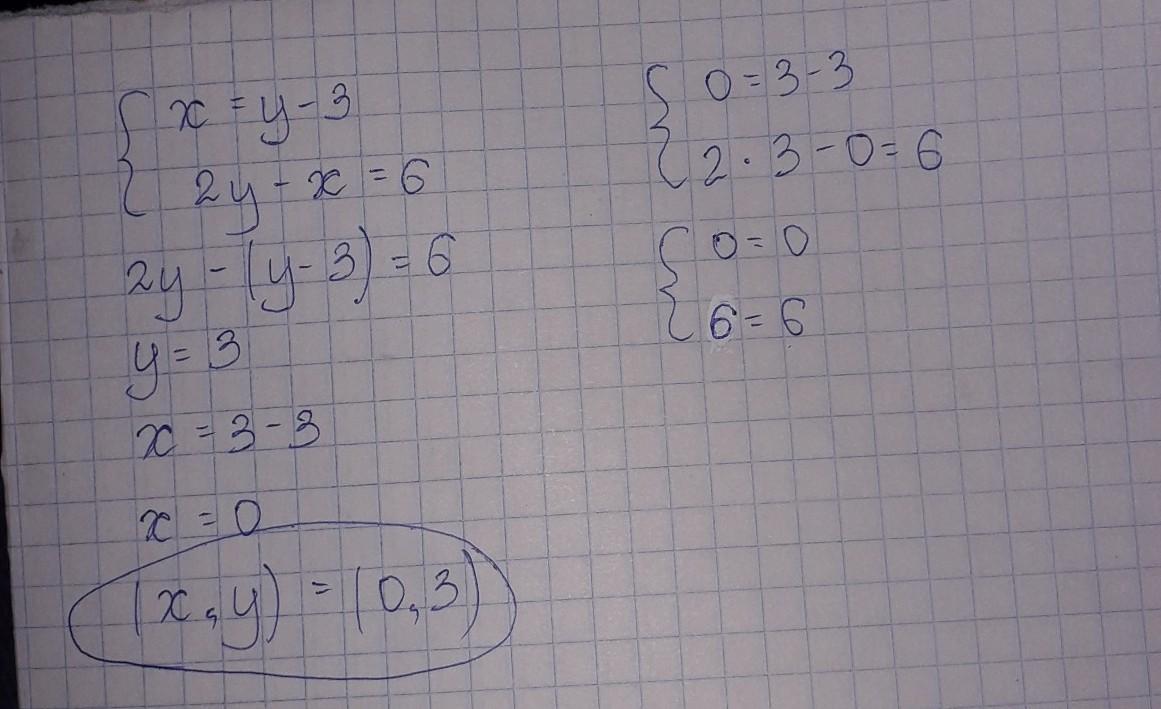 x = y - 3
2y - x = 6
2y - (y - 3) = 6
y = 3
x = 3 - 3
x = 0
(x, y) = (0, 3)
0 = 3 - 3
2 · 3 - 0 = 6
0 = 0
6 = 6